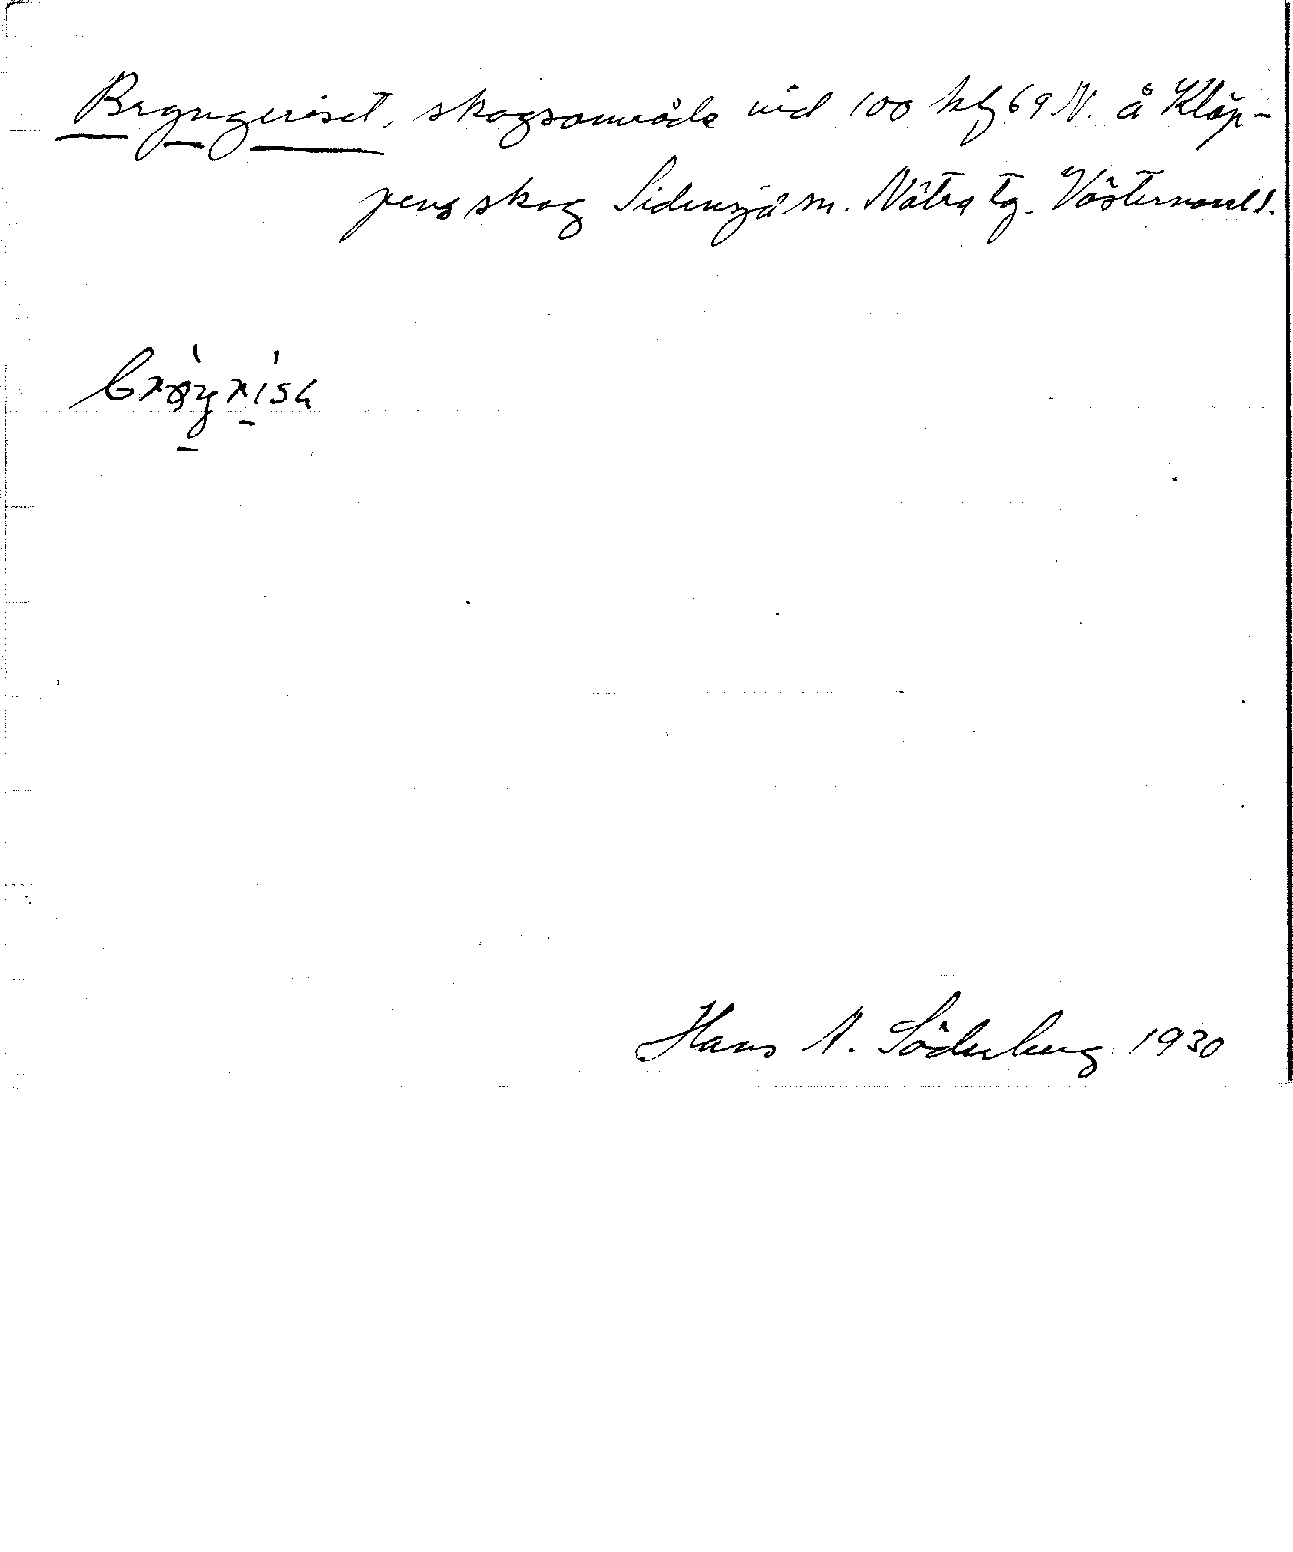 skogsområde vid 100 hlf 69 N. å Kläp-
pens skog Sidensjö sn. Nätra tg. Västernorrl.
Hans A. Söderberg 1930